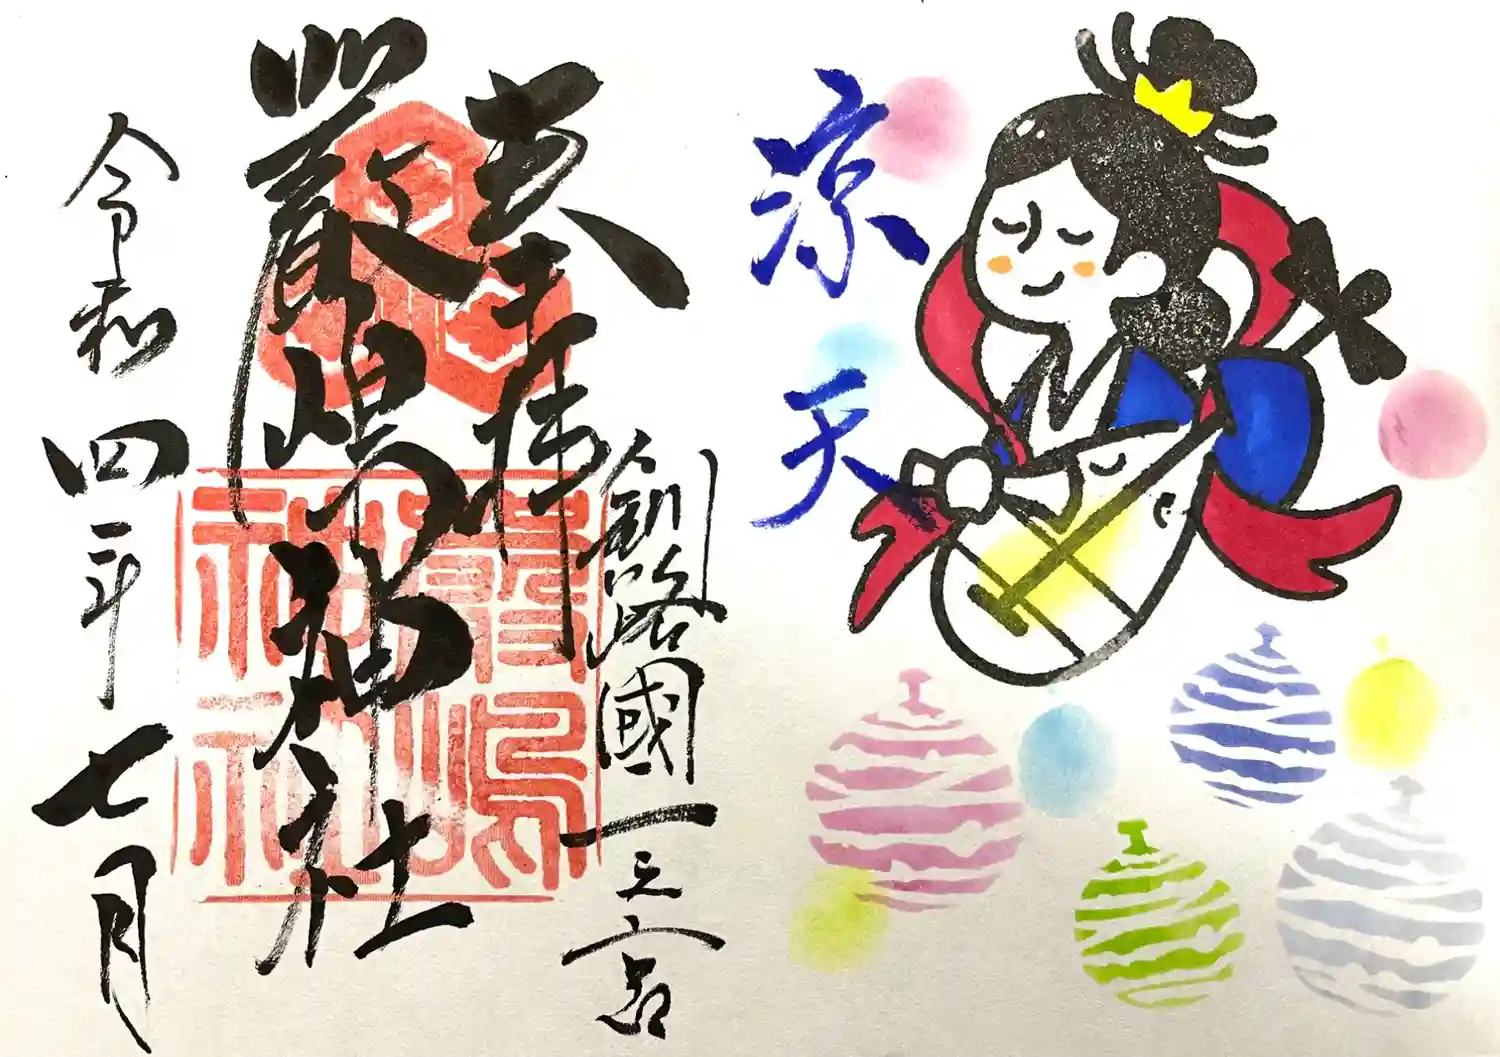 涼
天
釧路國一之宮
奉拝
厳島神社
令和四年七月
嚴嶋神社